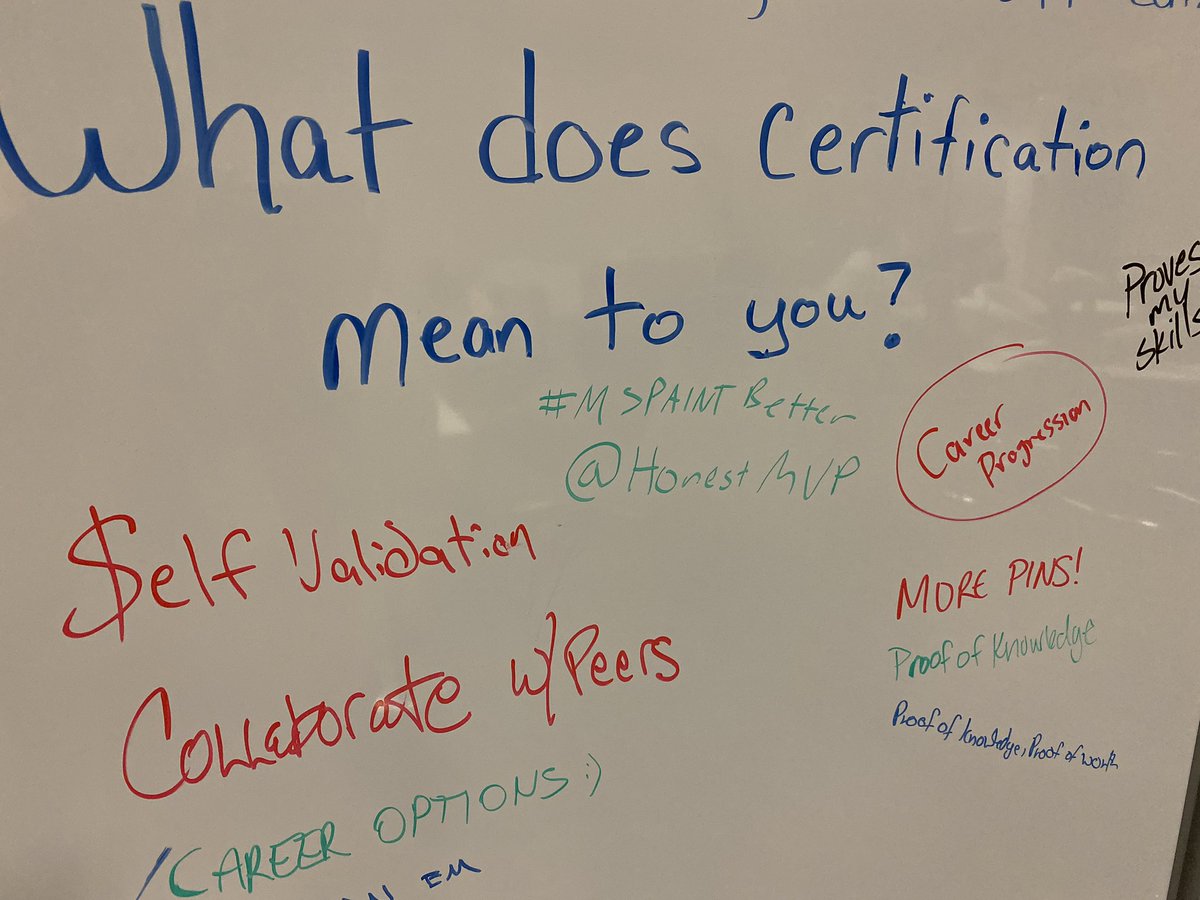 What does Certification
mean to you?
Proves
my
skills
#MSPAINT Better
@HonestMVP
Career
Progression
$elf Validation
MORE PINS!
Proof of Knowledge
Collaborate w/Peers
Proof of knowledge, Proof of worth
CAREER OPTIONS :)
EM